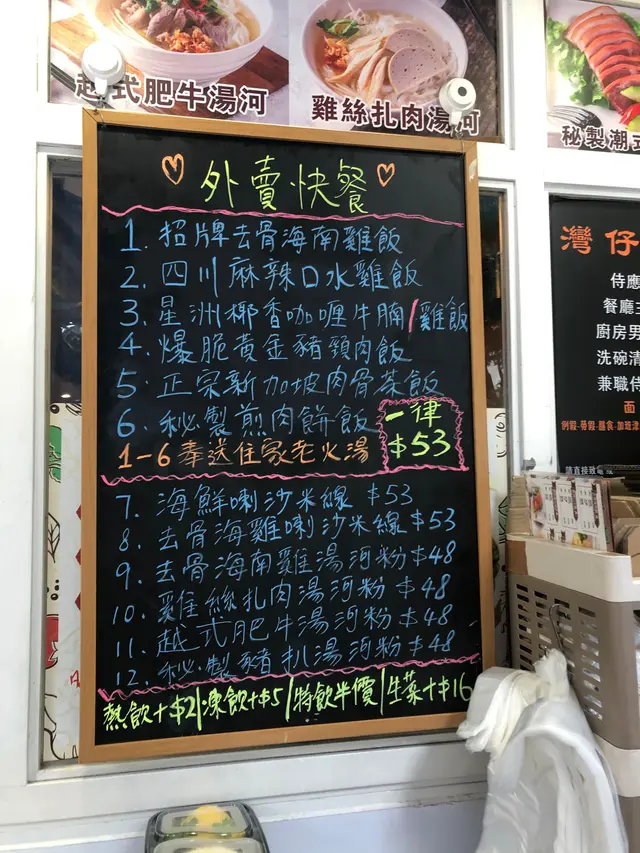 越式肥牛湯河
雞絲扎肉湯河
秘製潮式
外賣快餐
1. 招牌去骨海南雞飯
2. 四川麻辣口水雞飯
3. 星洲椰香咖喱牛腩/雞飯
4. 爆脆黃金豬頸肉飯
5. 正宗新加坡肉骨茶飯
6. 秘製煎肉餅飯
一律
$53
1-6奉送住家老火湯
7. 海鮮喇沙米線 $53
8. 去骨海雞喇沙米線 $53
9. 去骨海南雞湯河粉 $48
10. 雞絲扎肉湯河粉 $48
11. 越式肥牛湯河粉 $48
12. 秘製豬扒湯河粉 $48
熱飲+$2/凍飲+$5/特飲半價/生菜+$16
灣仔
侍應
餐廳
廚房男
洗碗清
兼職侍
面
例假·勞假·膳食·加班津
請直接致電